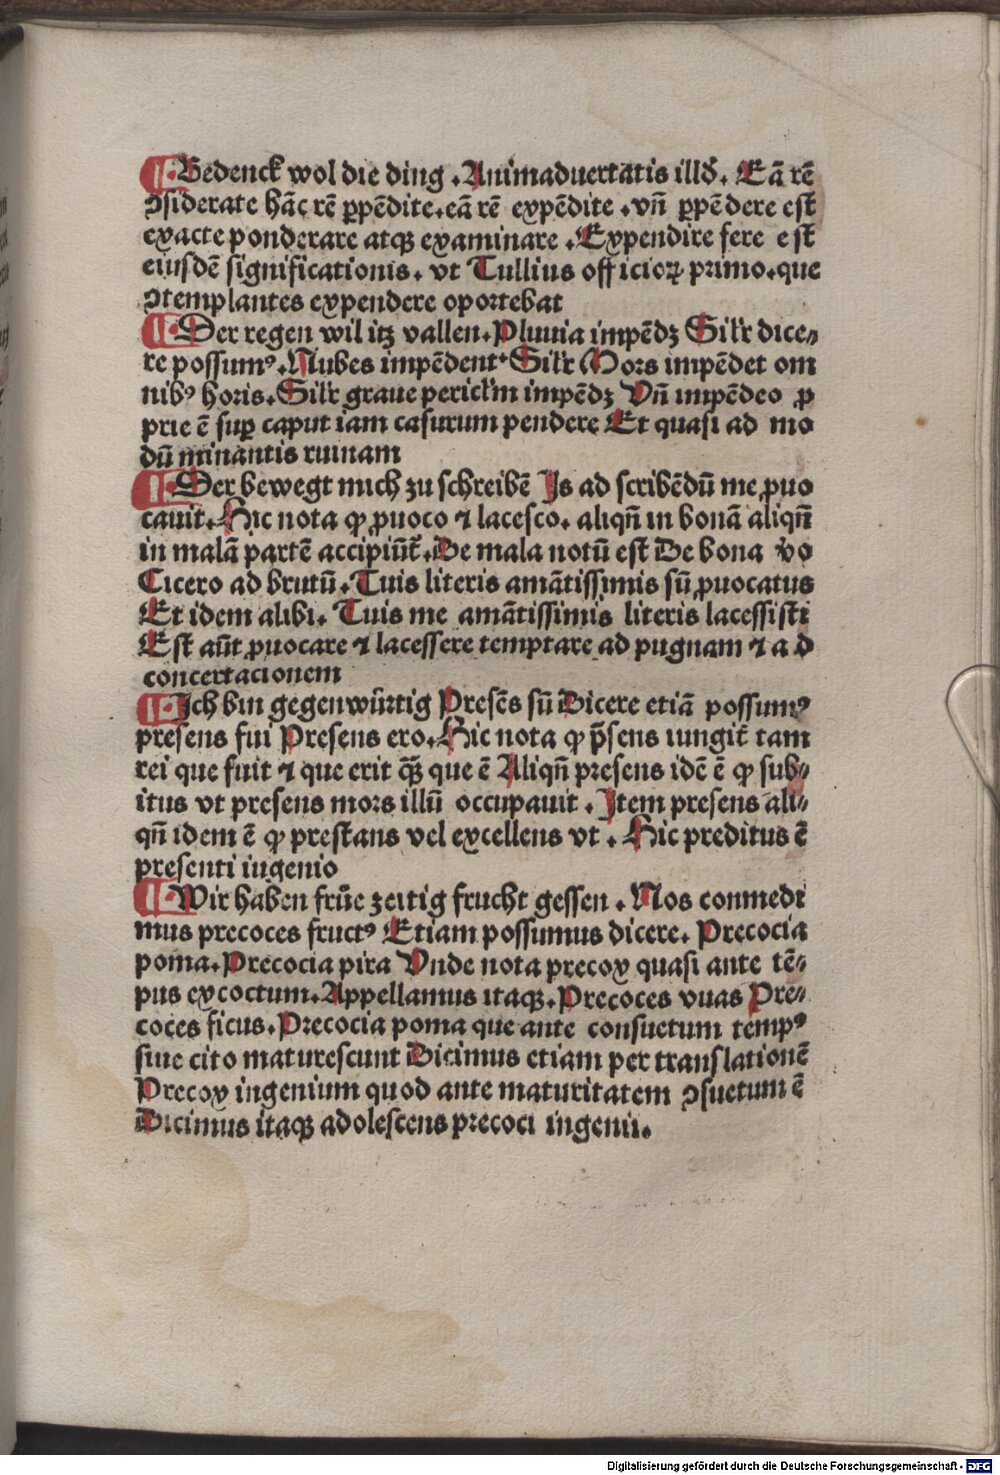 ¶ Bedenck wol die ding . Animaduertatis illđ. Eā rē
ↄsiderate hāc rē ꝑpēdite.eā rē expēdite .vñ ꝑpēdere est
exacte ponderare atqꝫ examinare .Expendire fere est
eiusdē significationis. vt Tullius officioꝝ primo.que
ↄtemplantes expendere oportebat
¶ Der regen wil itz vallen.Pluuia impēdꝫ Silr dice⸗
re possumꝰ.Nubes impēdent.Silr Mors impēdet om
nibꝰ horis.Silr graue pericłm impēdꝫ Vñ impēdeo ꝓ
prie ē suꝑ caput iam casurum pendere Et quasi ad mo
dū minantis ruinam
¶ Der bewegt mich zu schreibē Is ad scribēdū me ꝓuo
cauit.Hic nota ꝙ ꝓuoco ⁊ lacesco. aliqñ in bonā aliqñ
in malā partē accipiūt̄.De mala notū est De bona vo
Cicero ad brutū.Tuis literis amātissimis sū ꝓuocatus
Et idem alibi. Tuis me amātissimis literis lacessisti
Est aūt ꝓuocare ⁊ lacessere temptare ad pugnam ⁊ a d
concertacionem
¶ Ich bin gegenwürtig Presēs sū Dicere etiā possumꝰ
presens fui Presens ero.Hic nota ꝙ p̄sens iungit̄ tam
rei que fuit ⁊ que erit q̄ꝫ que ē Aliqñ presens idē ē ꝙ sub⸗
itus vt presens mors illū occupauit . Item presens ali⸗
qñ idem ē ꝙ prestans vel excellens vt . Hic preditus ē
presenti iugenio
¶ Wir haben frūe zeitig frucht gessen . Nos conmedi
mus precoces fructꝰ Etiam possumus dicere. Precocia
poma.Precocia pira Vnde nota precox quasi ante tē⸗
pus excoctum.Appellamus itaqꝫ.Precoces vuas Pre⸗
coces ficus.Precocia poma que ante consuetum tempꝰ
siue cito maturescunt Dicimus etiam per translationē
Precox ingenium quod ante maturitatem ↄsuetum ē
Dicimus itaqꝫ adolescens precoci ingenii.
Digitalisierung gefördert durch die Deutsche Forschungsgemeinschaft - DFG